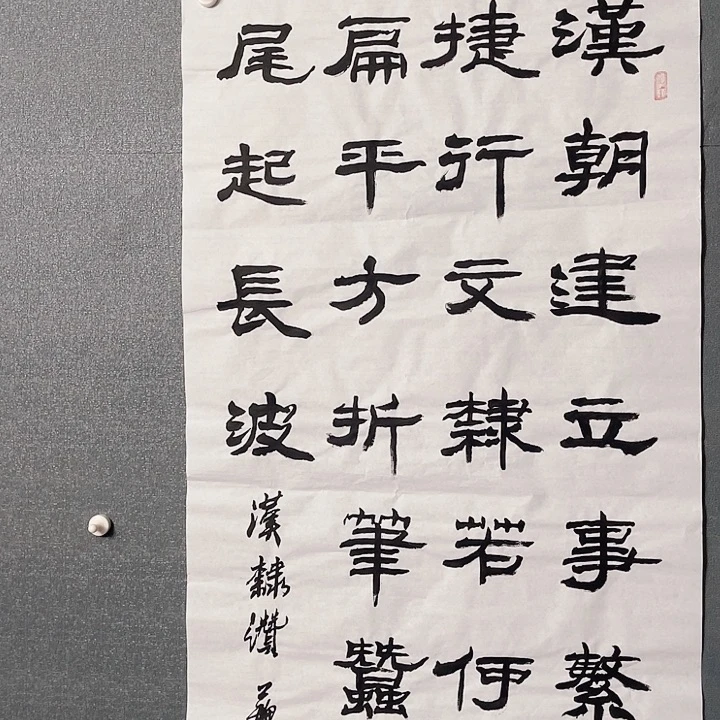 漢朝建立事繁
捷行文隸若何
扁平方折筆蠶
尾起長波
漢隸讚